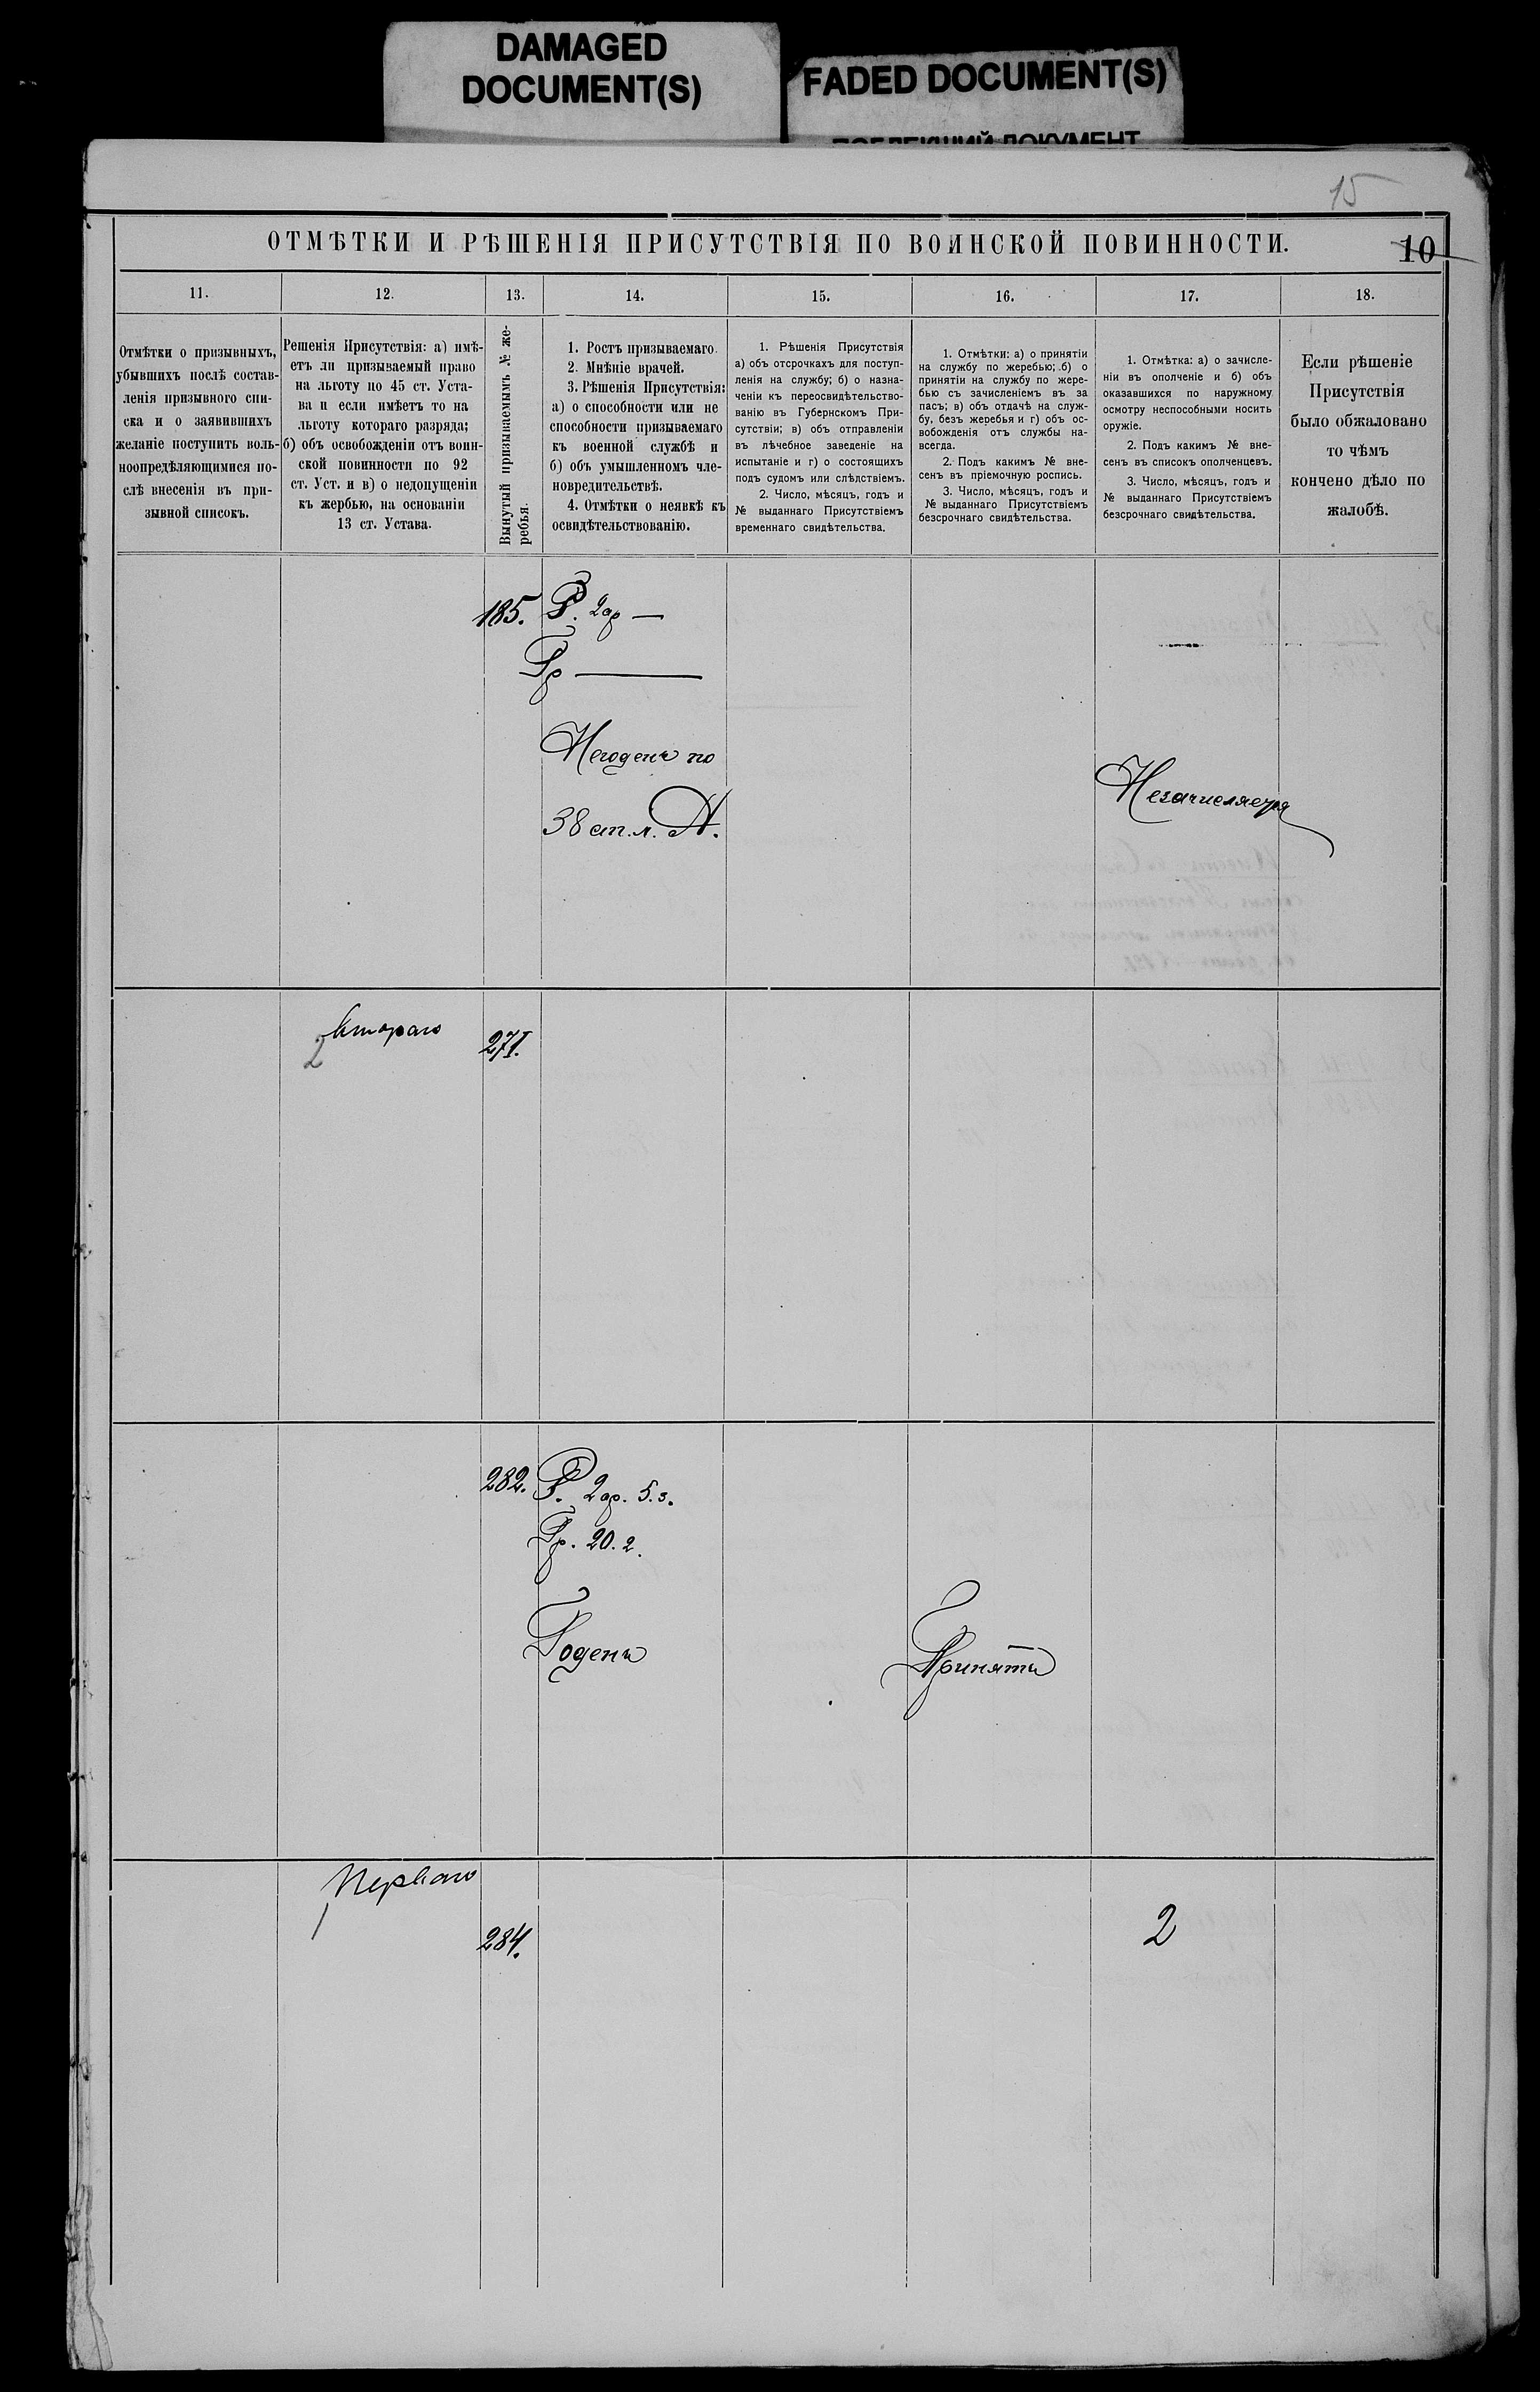 DAMAGED
DOCUMENT(S)
FADED DOCUMENT(S)
ПОБЛЕКШИЙ ДОКУМЕНТ
15
ОТМѢТКИ И РѢШЕНІЯ ПРИСУТСТВІЯ ПО ВОИНСКОЙ ПОВИННОСТИ.
10
11.
12.
13.
14.
15.
16.
17.
18.
Отмѣтки о призывныхъ,
убывшихъ послѣ состав-
ленія призывного спи-
ска и о заявившихъ
желаніе поступить воль-
ноопредѣляющимися по-
слѣ внесенія въ при-
зывной списокъ.
Решенія Присутствія: а) имѣ-
етъ ли призываемый право
на льготу по 45 ст. Уста-
ва и если имѣетъ то на
льготу котораго разряда;
б) объ освобожденіи отъ воин-
ской повинности по 92
ст. Уст. и в) о недопущеніи
къ жербью, на основаніи
13 ст. Устава.
Вынутый призываемымъ № же-
ребья.
1. Ростъ призываемаго.
2. Мнѣніе врачей.
3. Рѣшенія Присутствія:
а) о способности или не
способности призываемаго
къ военной службѣ и
б) объ умышленномъ чле-
новредительствѣ.
4. Отмѣтки о неявкѣ къ
освидѣтельствованію.
1. Рѣшенія Присутствія
а) объ отсрочкахъ для поступ-
ленія на службу; б) о назна-
ченіи къ переосвидѣтельство-
ванію въ Губернскомъ При-
сутствіи; в) объ отправленіи
въ лѣчебное заведеніе на
испытаніе и г) о состоящихъ
подъ судомъ или слѣдствіемъ.
2. Число, мѣсяцъ, годъ и
№ выданнаго Присутствіемъ
временнаго свидѣтельства.
1. Отмѣтки: а) о принятіи
на службу по жеребью; б) о
принятіи на службу по жере-
бью съ зачисленіемъ въ за
пасъ; в) объ отдачѣ на служ-
бу, безъ жеребья и г) объ ос-
вобожденія отъ службы на-
всегда.
2. Подъ какимъ № вне-
сенъ въ пріемочную роспись.
3. Число, мѣсяцъ, годъ и
№ выданнаго Присутствіемъ
безсрочнаго свидѣтельства.
1. Отмѣтка: а) о зачисле-
ніи въ ополченіе и б) объ
оказавшихся по наружному
осмотру неспособными носить
оружіе.
2. Подъ какимъ № вне-
сенъ въ списокъ ополченцевъ.
3. Число, мѣсяцъ, годъ и
№ выданнаго Присутствіемъ
безсрочнаго свидѣтельства.
Если рѣшеніе
Присутствія
было обжаловано
то чѣмъ
кончено дѣло по
жалобѣ.
185.
Р. 2ар —
Гр —
Негоденъ по
38 ст. л. А.
Незачисляется
втораго
2
271.
282.
Р. 2ар. 5. з.
Гр. 20. 2.
Годенъ
Принятъ
Перваго
1
284.
2